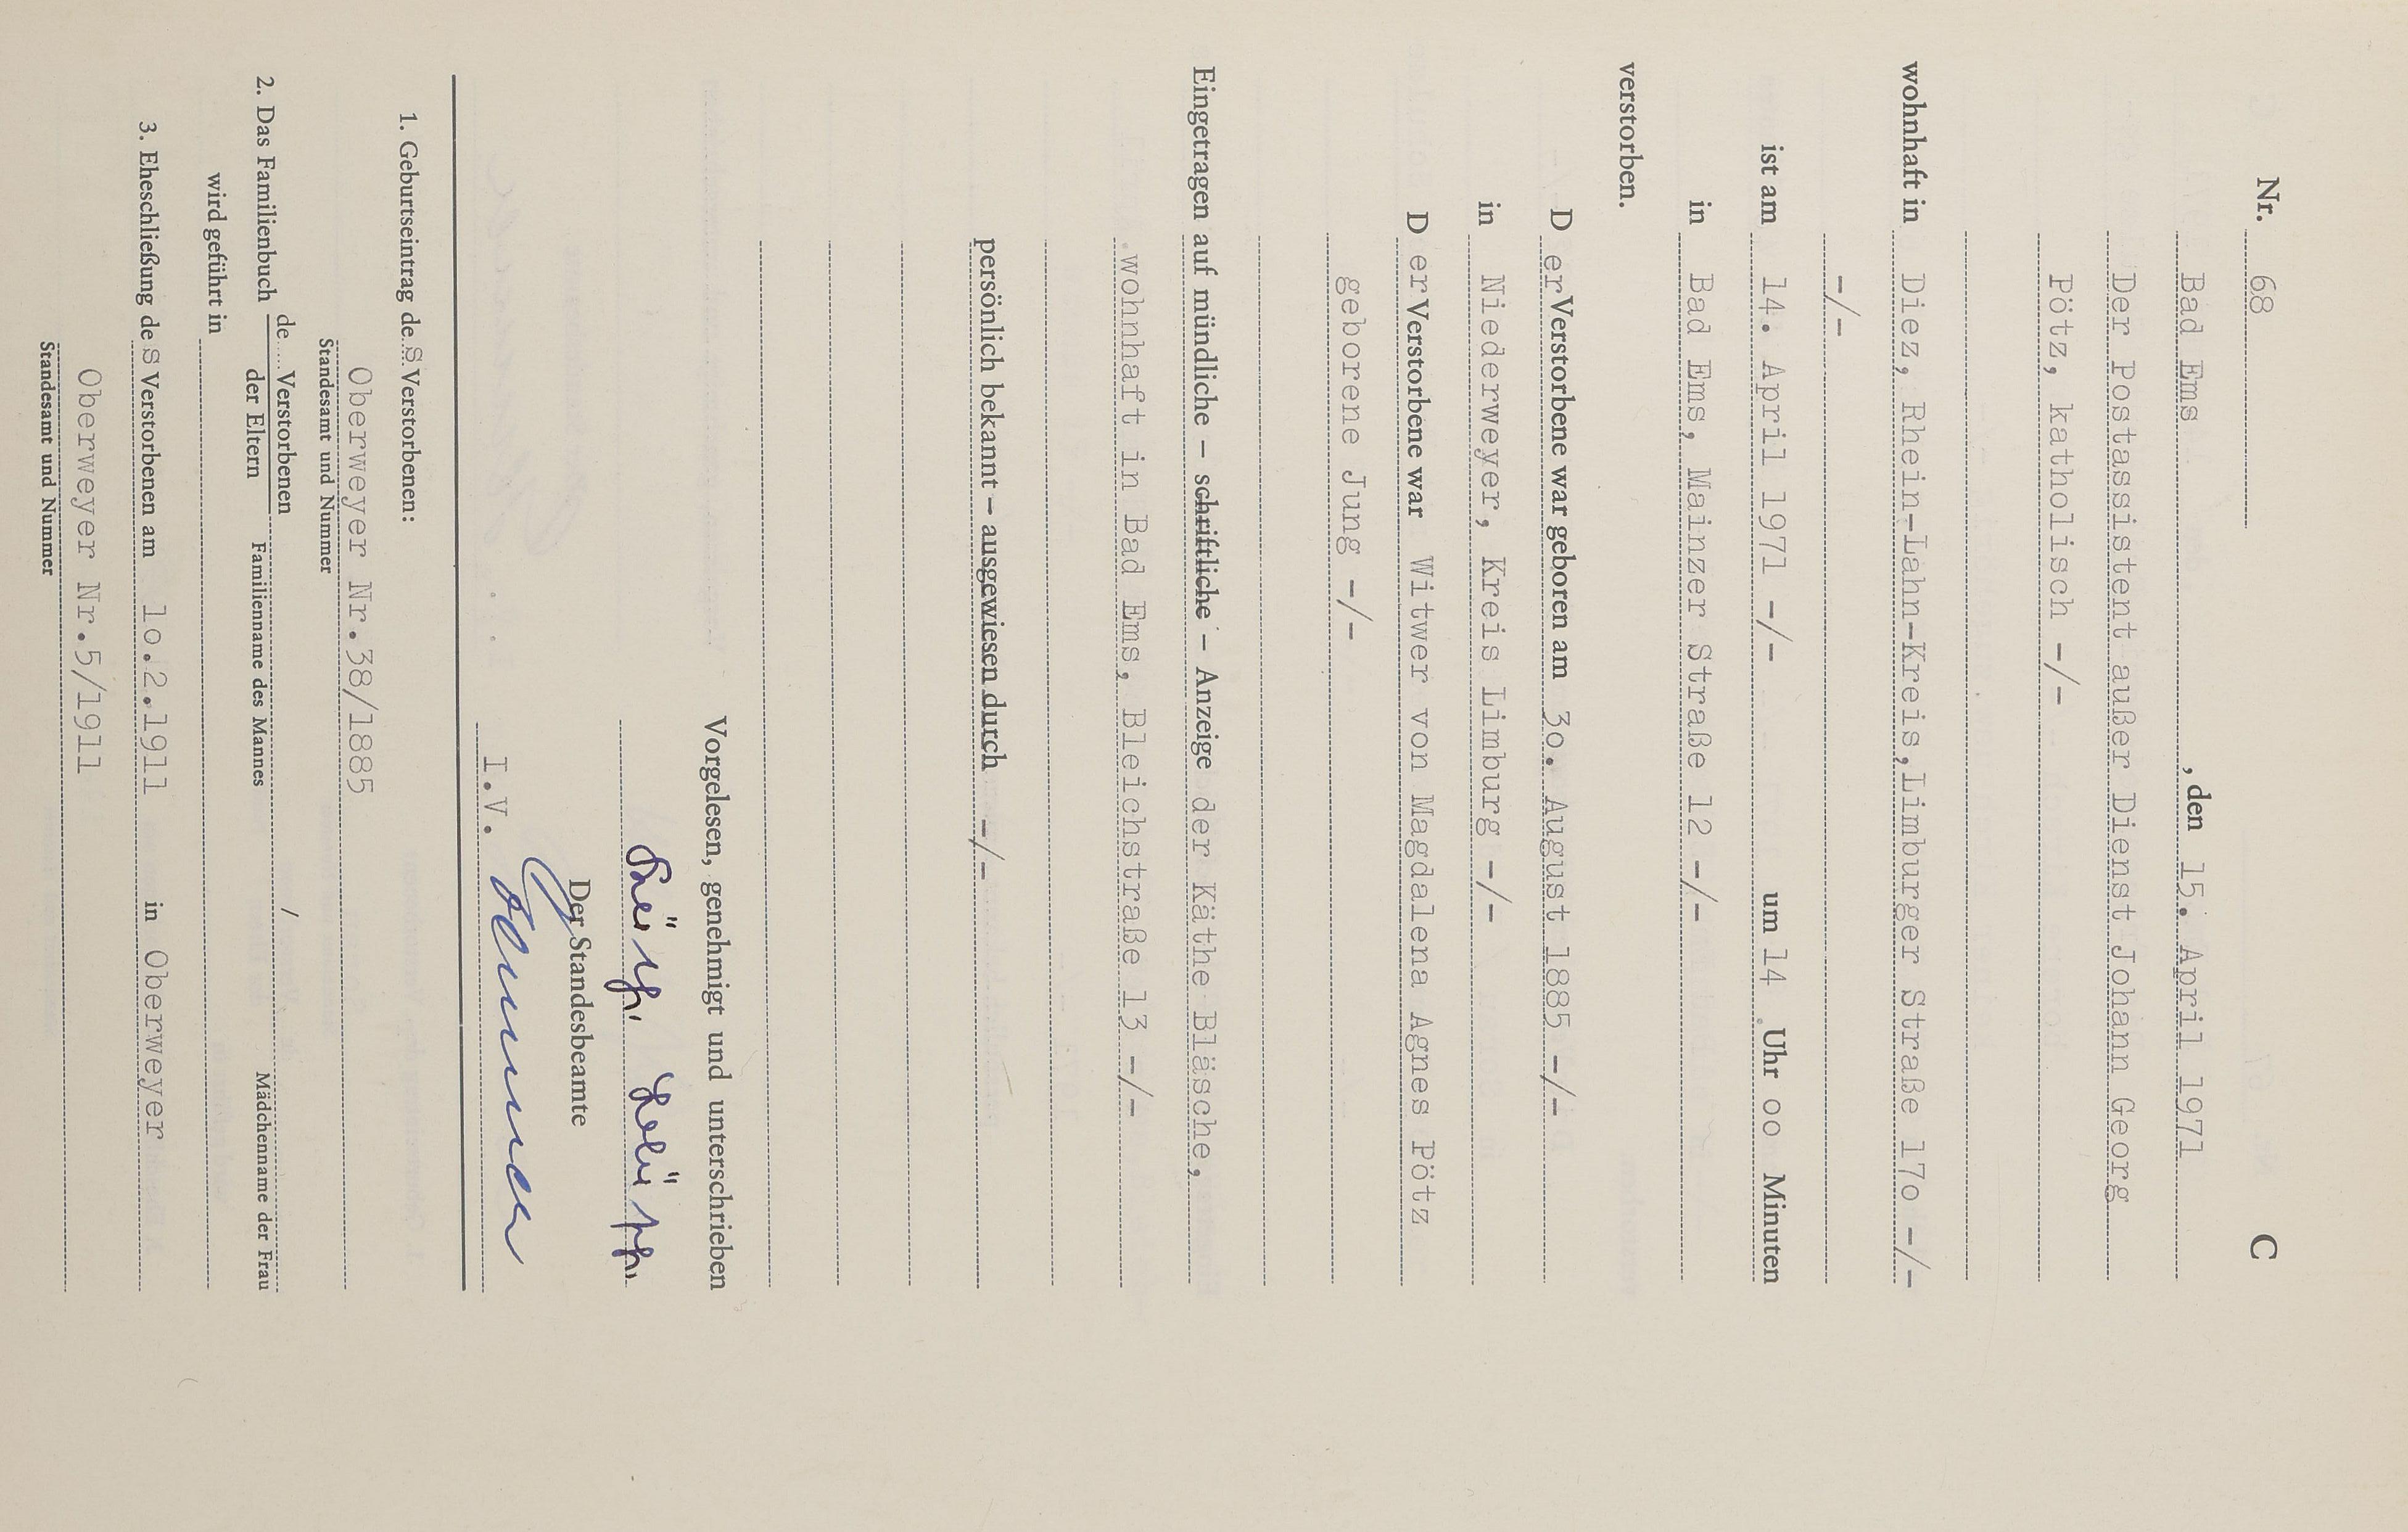 Nr. 68 C
Bad Ems , den 15. April 1971
Der Postassistent außer Dienst Johann Georg
Pötz, katholisch -/-
wohnhaft in Diez, Rhein-Lahn-Kreis,Limburger Straße 17o -/-
-/-
ist am 14. April 1971 -/- um 14 Uhr oo Minuten
in Bad Ems, Mainzer Straße 12 -/-
verstorben.
D er Verstorbene war geboren am 3o. August 1885 -/-
in Niederweyer, Kreis Limburg -/-
D er Verstorbene war Witwer von Magdalena Agnes Pötz
geborene Jung -/-
Eingetragen auf mündliche – schriftliche – Anzeige der Käthe Bläsche,
wohnhaft in Bad Ems, Bleichstraße 13 -/-
persönlich bekannt – ausgewiesen durch -/-
Vorgelesen, genehmigt und unterschrieben
Der Standesbeamte
I.V.
1. Geburtseintrag de s Verstorbenen:
Oberweyer Nr.38/1885
Standesamt und Nummer
2. Das Familienbuch de Verstorbenen /
der Eltern Familienname des Mannes Mädchenname der Frau
wird geführt in
3. Eheschließung de s Verstorbenen am 1o.2.1911 in Oberweyer
Oberweyer Nr.5/1911
Standesamt und Nummer